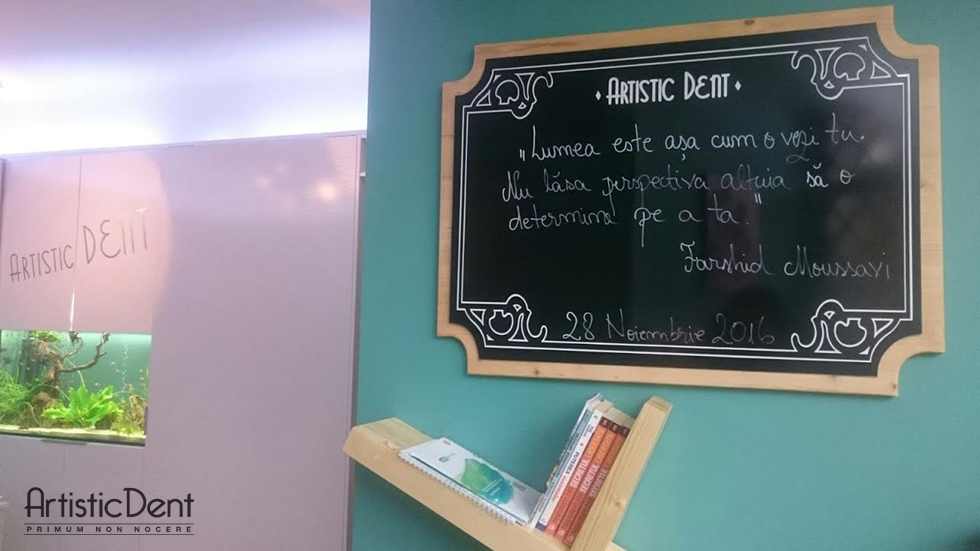 • ARTISTIC DENT •
„Lumea este așa cum o vezi tu.
Nu lăsa perspectiva altuia să o
determine pe a ta."
Farshid Moussavi
28 Noiembrie 2016
ARTISTIC DENT
SECRETUL
SECRETUL
SECRETUL
ArtisticDent
PRIMUM NON NOCERE